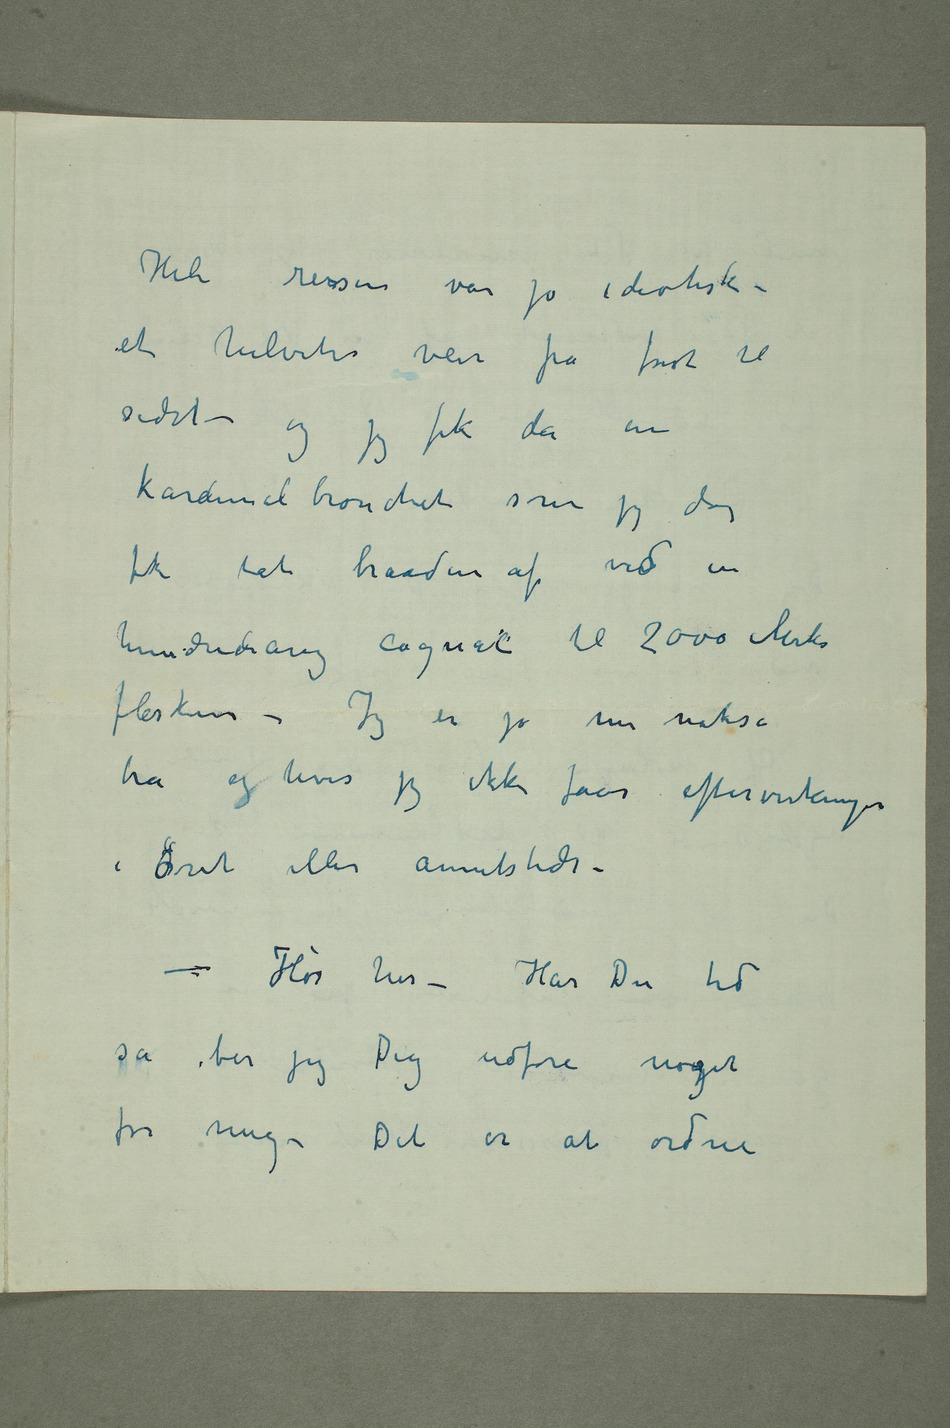 Hele reisen var jo idiotisk –
et helvetes veir fra först til
sidst – og jeg fik da en
kardinalbronchit som jeg dog
fik tat braaden af ved en
hundredeaarig cognac til 2000 Marks
flasken – Jeg er jo nu nokså
bra og hvis jeg ikke faar eftervirkninger
i Öret eller annetsteds –
– Hör her – Har Du tid
så ber jeg Dig udföre noget
for mig – Det er at ordne